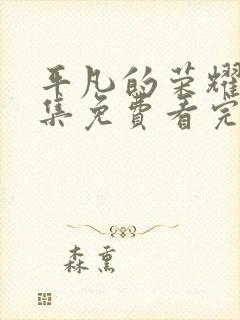 平凡的荣耀
集免费看完
森熏